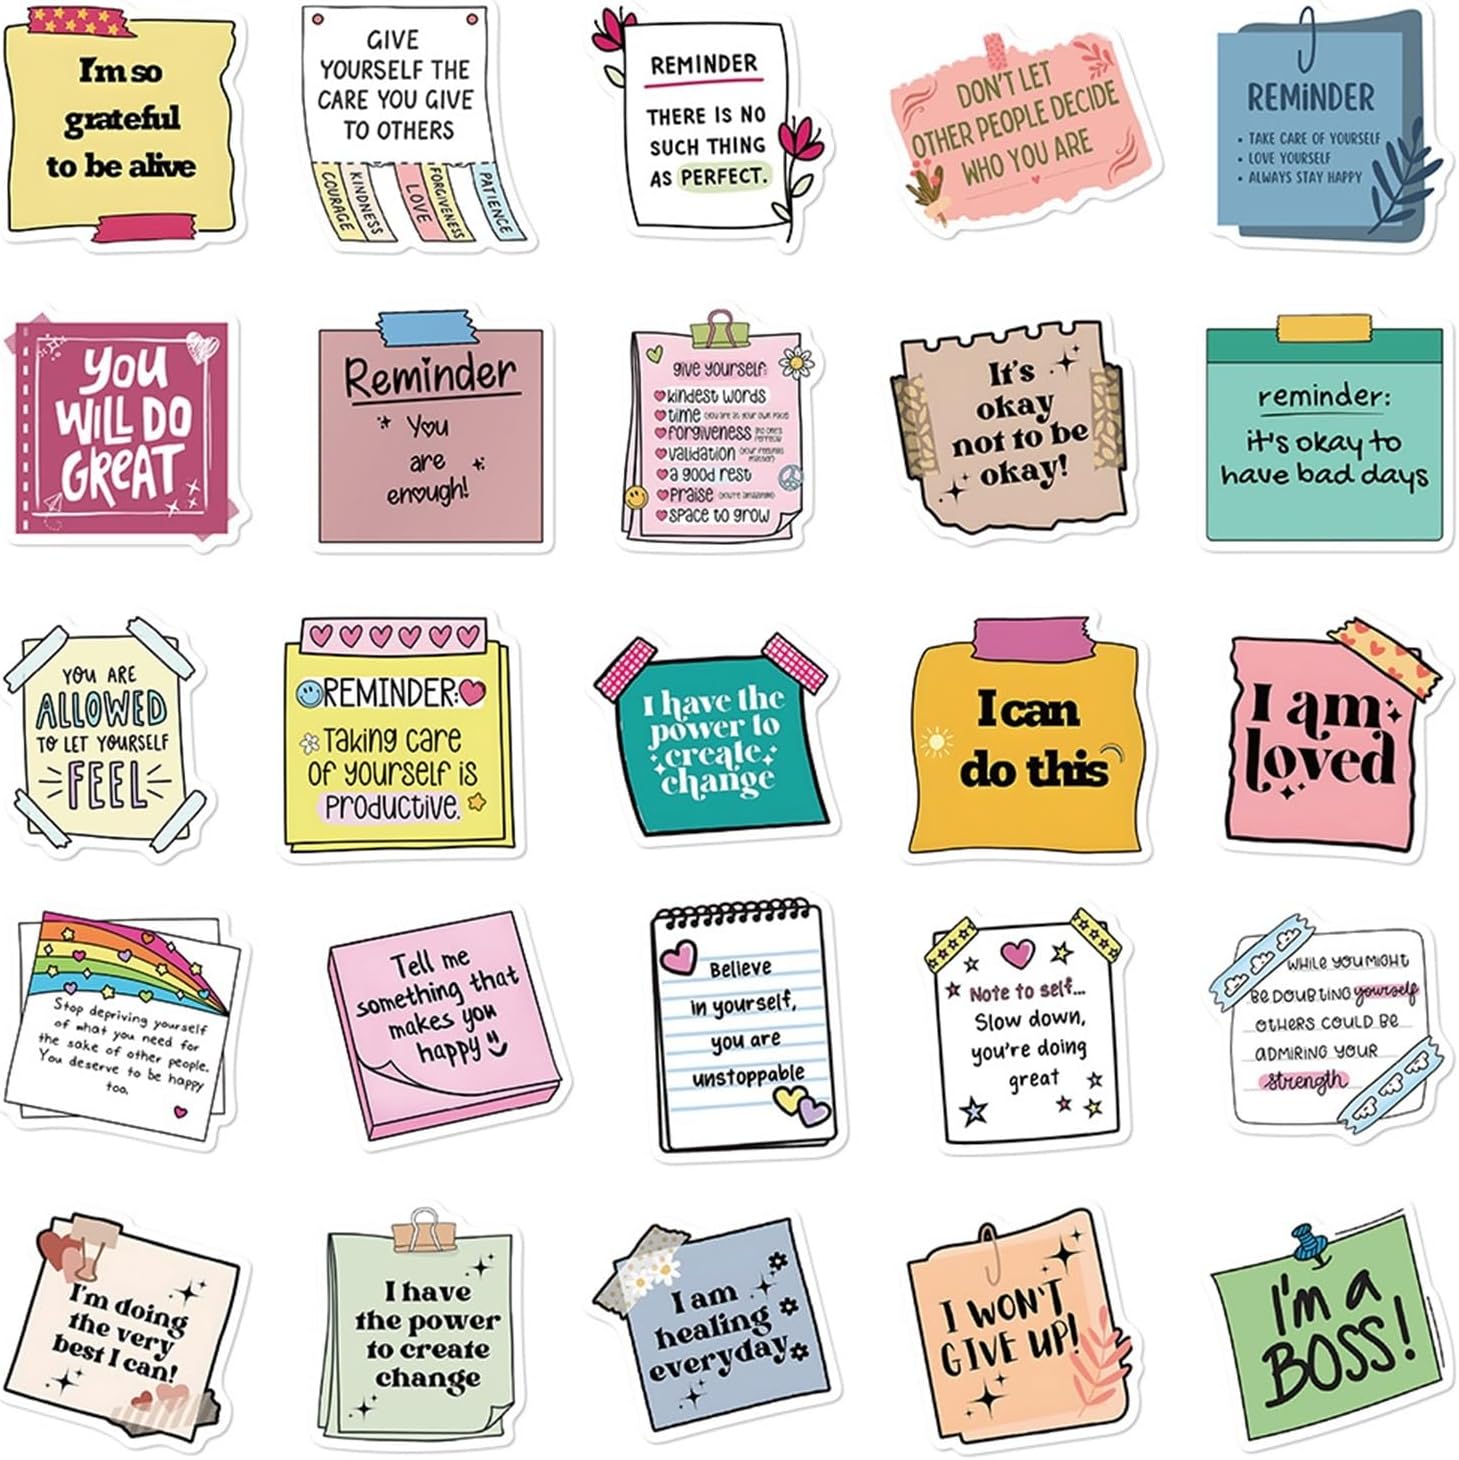 I'm so
grateful
to be alive
GIVE
YOURSELF THE
CARE YOU GIVE
TO OTHERS
COURAGE
KINDNESS
LOVE
FORGIVENESS
PATIENCE
REMINDER
THERE IS NO
SUCH THING
AS PERFECT.
DON'T LET
OTHER PEOPLE DECIDE
WHO YOU ARE
REMINDER
• TAKE CARE OF YOURSELF
• LOVE YOURSELF
• ALWAYS STAY HAPPY
YOU
WILL DO
GREAT
Reminder
You
are
enough!
give yourself:
kindest words
time (you are at your own pace)
forgiveness (no one's perfect)
validation (your feelings matter)
a good rest
praise (you're amazing)
space to grow
It's
okay
not to be
okay!
reminder:
it's okay to
have bad days
YOU ARE
ALLOWED
TO LET YOURSELF
FEEL
REMINDER:
Taking care
of yourself is
productive.
I have the
power to
create
change
I can
do this
I am
loved
Stop depriving yourself
of what you need for
the sake of other people.
You deserve to be happy
too.
Tell me
something that
makes you
happy
Believe
in yourself,
you are
unstoppable
Note to self...
Slow down,
you're doing
great
WHILE YOU MIGHT
BE DOUBTING yourself
OTHERS COULD BE
ADMIRING YOUR
strength
I'm doing
the very
best I can!
I have
the power
to create
change
I am
healing
everyday
I WON'T
GIVE UP!
I'm a
BOSS!